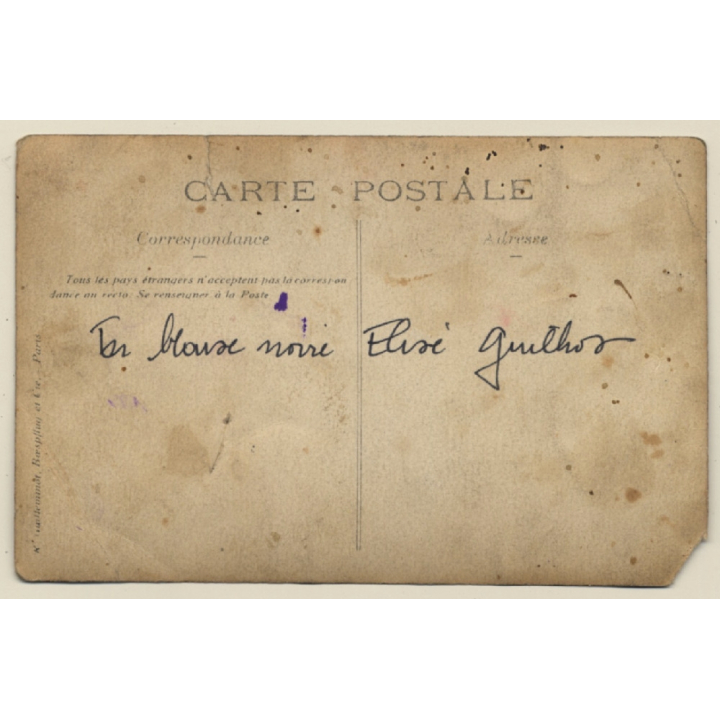 CARTE POSTALE
Correspondance
Adresse
Tous les pays étrangers n'acceptent pas la correspon
dance au recto: Se renseigner à la Poste
En blouse noire Elisé Guilhot
Paris